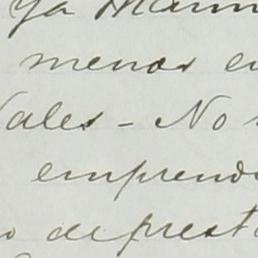 ya
menos e
ales - No
emprend
o de prest